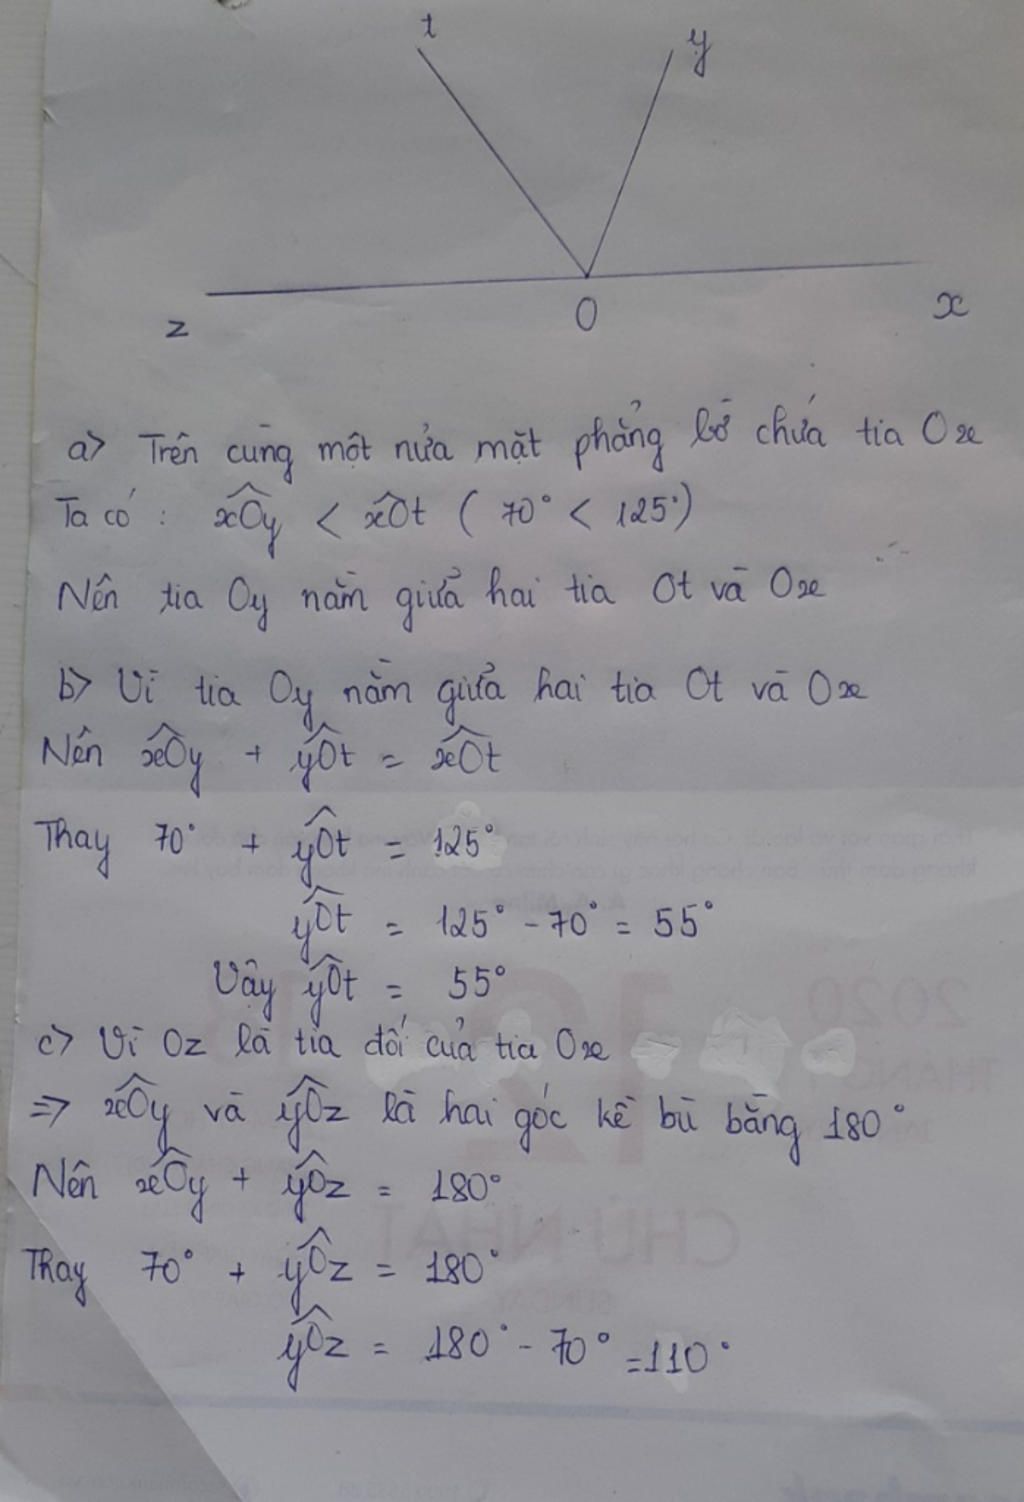 t
y
z
O
x
a> Trên cùng một nửa mặt phẳng bờ chứa tia Ox
Ta có : xÔy < xÔt ( 70° < 125°)
Nên tia Oy nằm giữa hai tia Ot và Ox
b> Vì tia Oy nằm giữa hai tia Ot và Ox
Nên xÔy + yÔt = xÔt
Thay 70° + yÔt = 125°
yÔt = 125° - 70° = 55°
Vậy yÔt = 55°
c> Vì Oz là tia đối của tia Ox
=> xÔy và yÔz là hai góc kề bù bằng 180°
Nên xÔy + yÔz = 180°
Thay 70° + yÔz = 180°
yÔz = 180° - 70° = 110°
2020
CHỦ NHẬT
SUNDAY